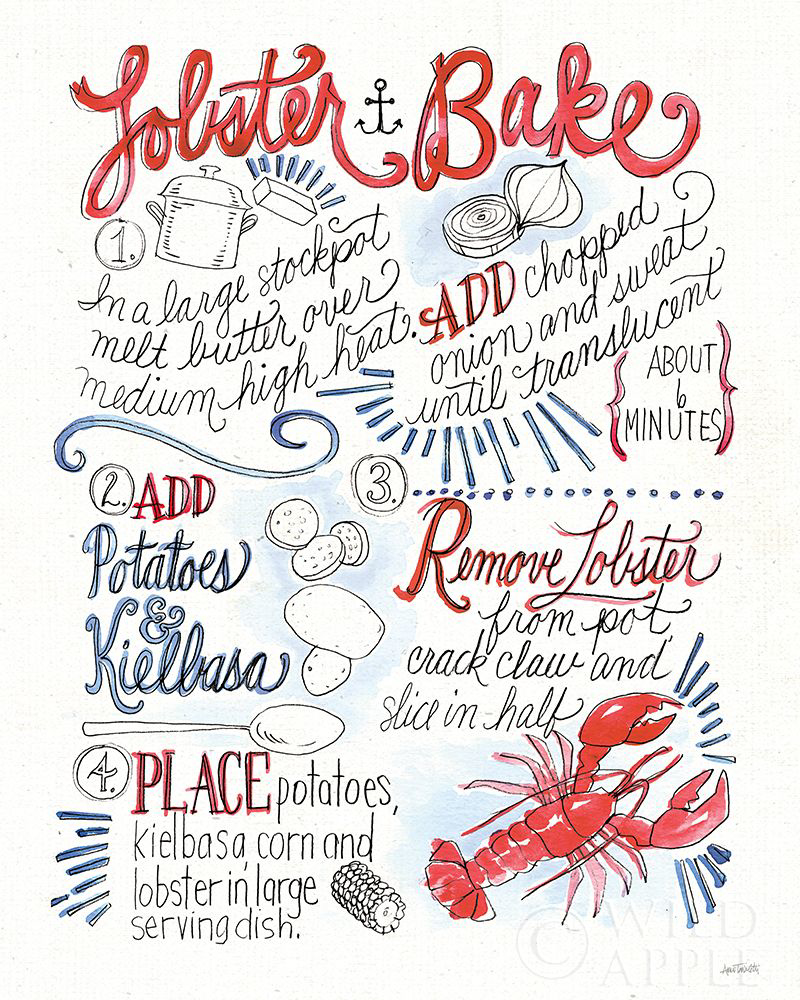 Lobster Bake
1.
In a large stockpot
melt butter over
medium high heat.
ADD chopped
onion and sweat
until translucent
{ABOUT
6
MINUTES}
2. ADD
Potatoes
&
Kielbasa
3.
Remove Lobster
from pot,
crack claw and
slice in half
4. PLACE potatoes,
kielbasa, corn and
lobster in large
serving dish.
© WILD
APPLE